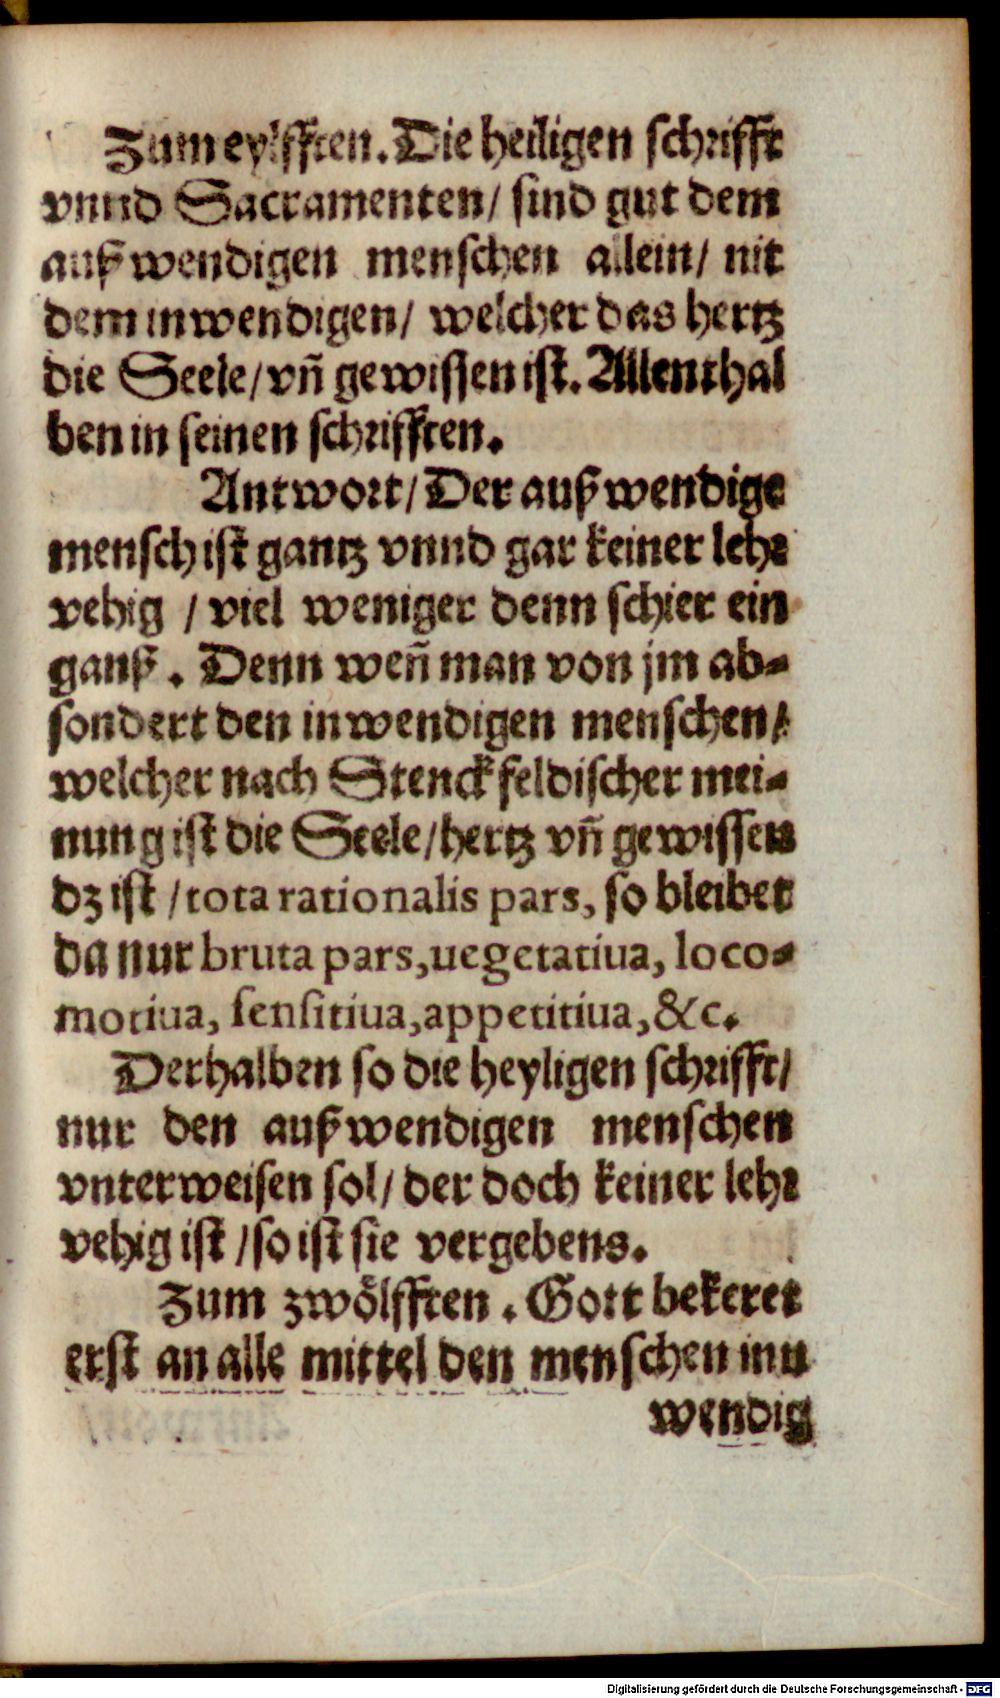 Zum eylfften. Die heiligen schrifft
vnnd Sacramenten/ sind gut dem
außwendigen menschen allein/ nit
dem inwendigen/ welcher das hertz
die Seele/ vñ gewissen ist. Allenthal
ben in seinen schrifften.
Antwort/ Der außwendige
mensch ist gantz vnnd gar keiner lehr
vehig / viel weniger denn schier ein
ganß. Denn weñ man von jm ab-
sondert den inwendigen menschen/
welcher nach Stenckfeldischer mei-
nung ist die Seele/ hertz vñ gewissen
dz ist / tota rationalis pars, so bleibet
da nur bruta pars, uegetatiua, loco-
motiua, sensitiua, appetitiua, &c.
Derhalben so die heyligen schrifft/
nur den außwendigen menschen
vnterweisen sol/ der doch keiner lehr
vehig ist / so ist sie vergebens.
Zum zwölfften. Gott bekeret
erst an alle mittel den menschen inn
wendig
Digitalisierung gefördert durch die Deutsche Forschungsgemeinschaft - DFG